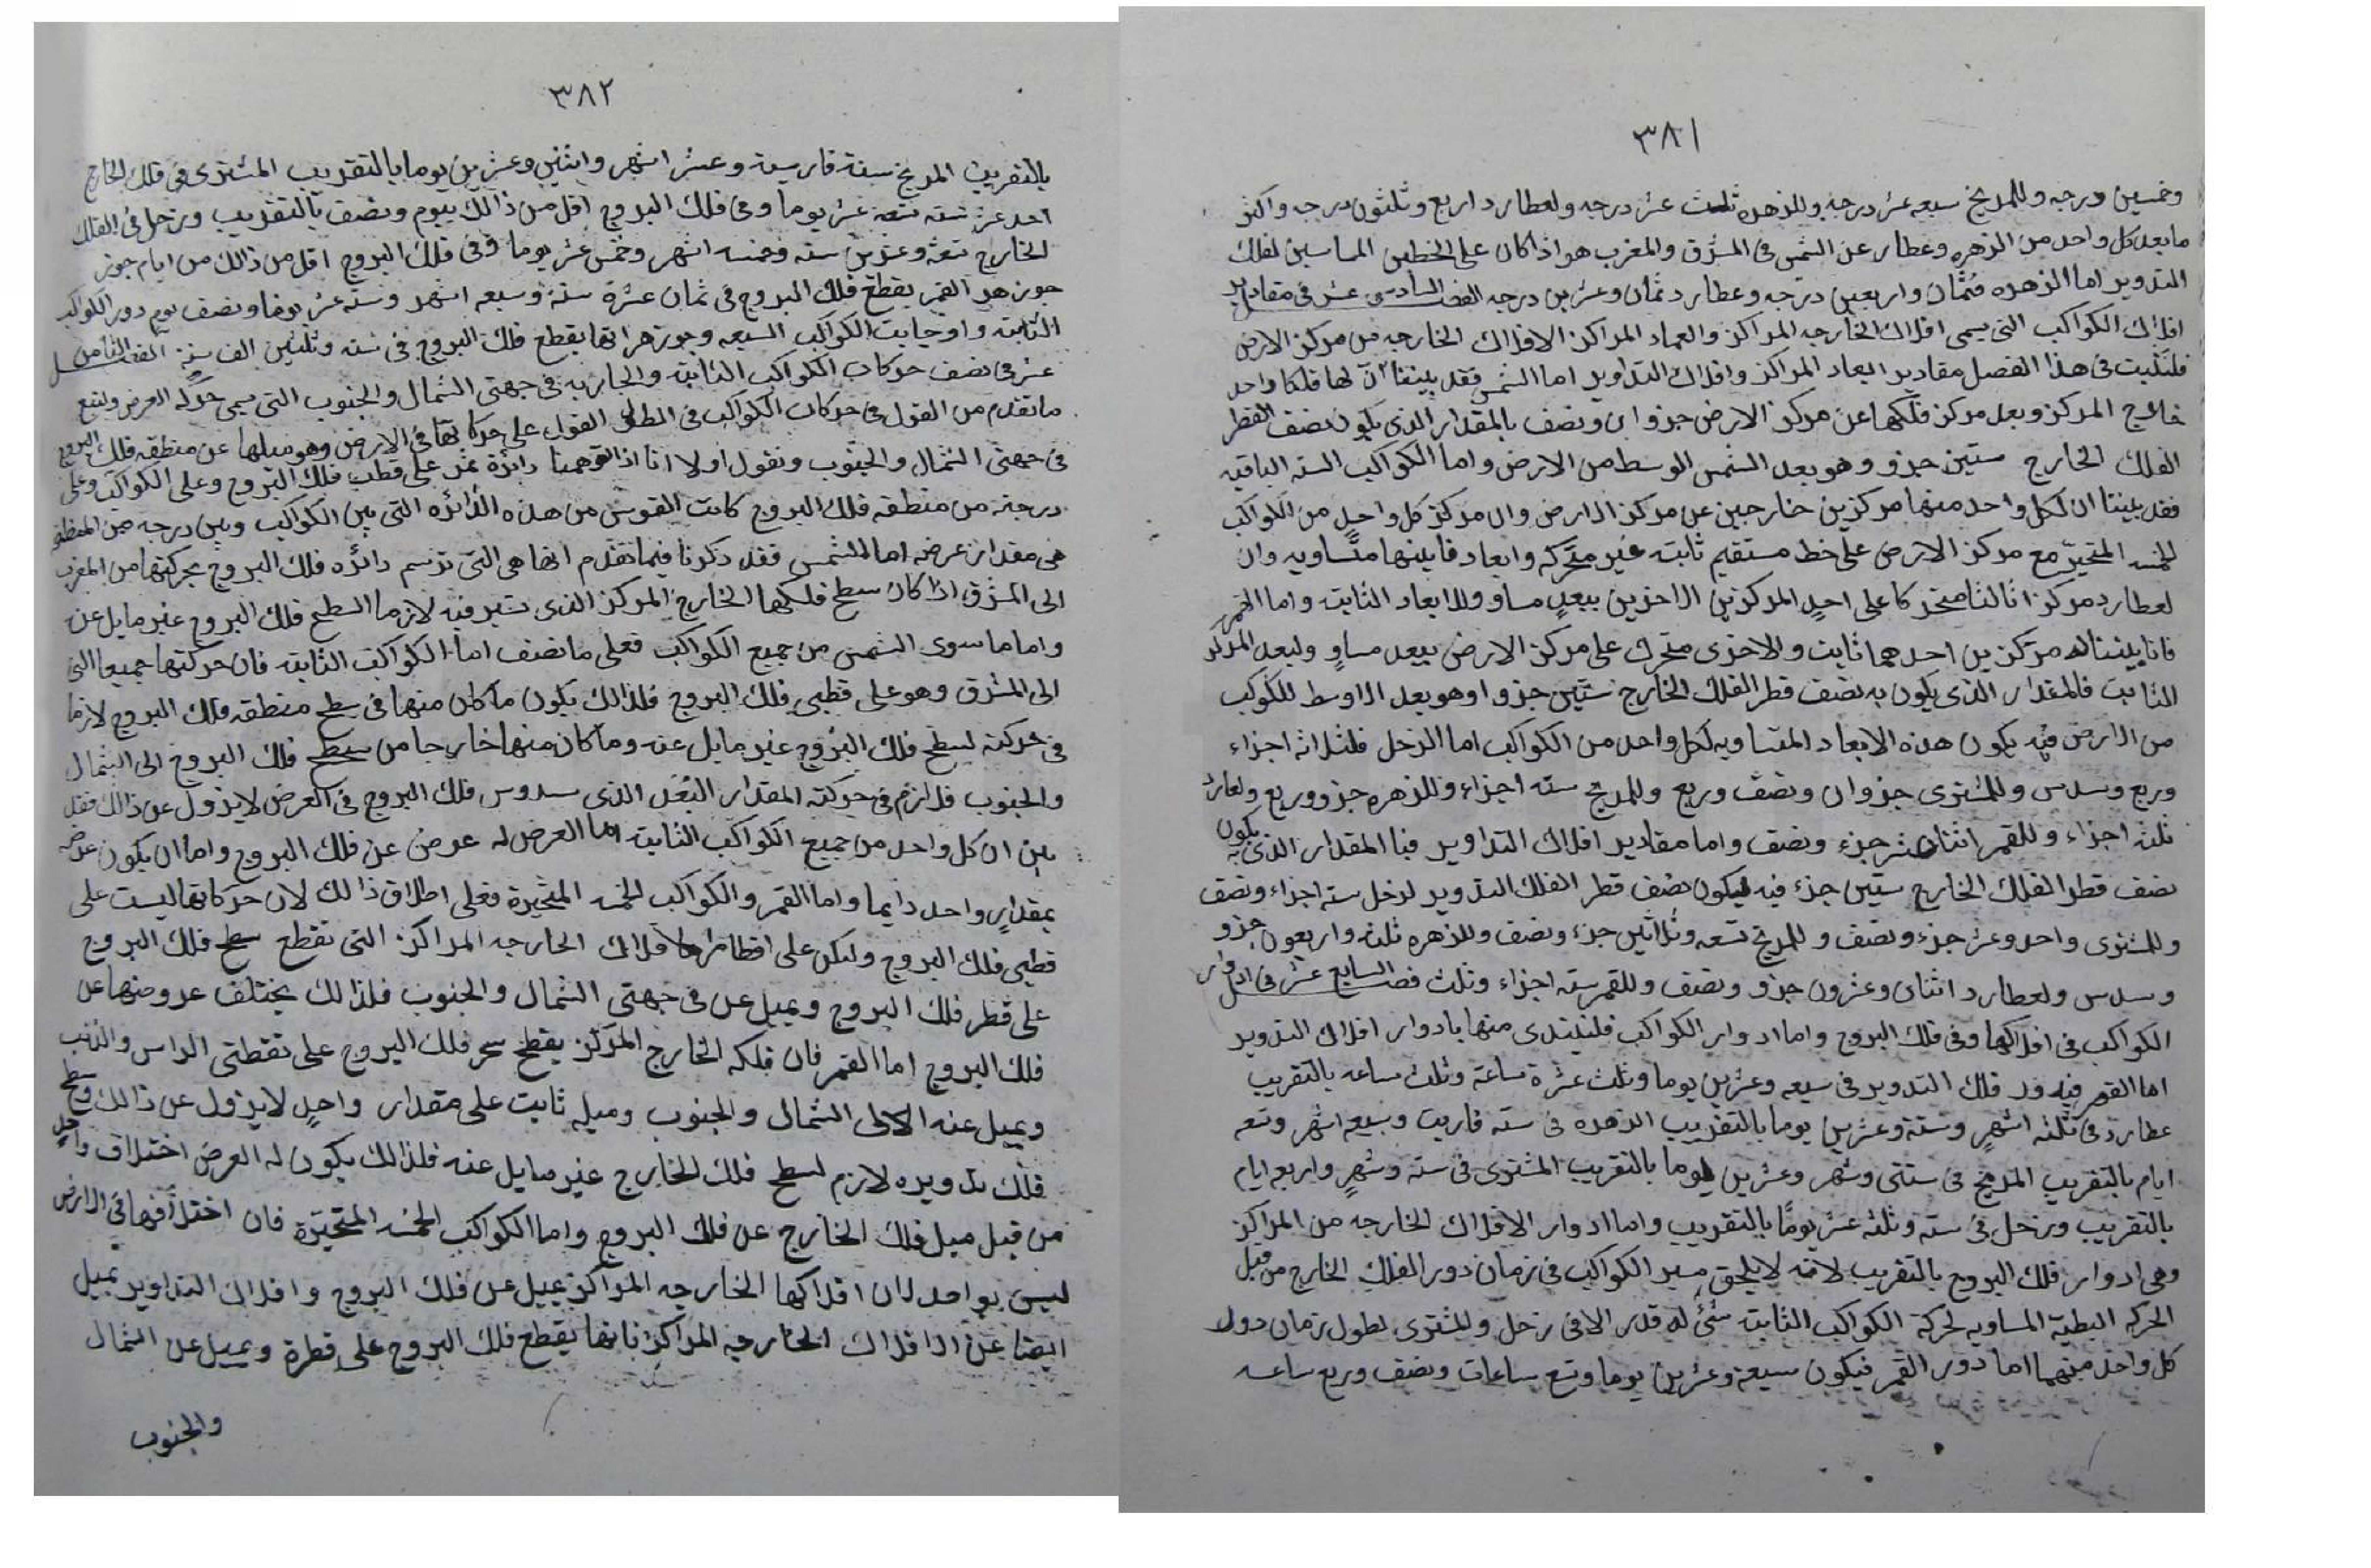 ٣٨١
وخمسين درجه وللمريخ سبعه عشر درجه وللزهره ثلث عشر درجه ولعطارد اربع وثلثون درجه واكثر
ما بعد كل واحد من الزهره وعطارد عن الشمس فى المشرق والمغرب هو اذا كان على الخطين المماسين لفلك
التدوير اما الزهره فثمان واربعين درجه وعطارد ثمان وعشرين درجه الفصل السادس عشر فى مقادير
افلاك الكواكب التى يسمى افلاك الخارجه المراكز والعماد المراكز الافلاك الخارجه من مركز الارض
فلنثبت فى هذا الفصل مقادير ابعاد المراكز وافلاك التداوير اما الشمس فقد بيننا ان لها فلكا واحد
خارج المركز وبعد مركز فلكها عن مركز الارض جزو ان ونصف بالمقدار الذى يكون نصف القطر
الفلك الخارج ستين جزو وهو بعد الشمس الوسط من الارض واما الكواكب السته الباقيه
فقد بيننا ان لكل واحد منها مركزين خارجين عن مركز الارض وان مركز كل واحد من الكواكب
الخمسه المتحيره مع مركز الارض على خط مستقيم ثابته غير متحركه وابعاد فابينها متساويه وان
لعطارد مركزا ثالثا متحركا على احد المركزين الاخرين ببعد مساو والابعاد الثابته واما القمر
فانا بيننا له مركزين احدهما ثابت والاخرى متحرك على مركز الارض ببعد مساو ولبعد المركز
الثابت فالمقدار الذى يكون به نصف قطر الفلك الخارج ستين جزوا وهو بعد الاوسط للكوكب
من الارض فيه يكون هذه الابعاد المتساويه لكل واحد من الكواكب اما الزحل فثلاثه اجزاء
وربع وسدس وللمشترى جزوان ونصف وربع وللمريخ سته اجزاء وللزهره جزو وربع ولعطارد
ثلثه اجزاء وللقمر اثنتان عشر جزء ونصف واما مقادير افلاك التداوير فبا المقدار الذى يكون به
نصف قطر الفلك الخارج ستين جزء فيه ليكون نصف قطر الفلك التدوير لزحل سته اجزاء ونصف
وللمشترى واحد وعشر جزء ونصف وللمريخ تسعه وثلاثين جزء ونصف وللزهره ثلثه واربعون جزو
وسدس ولعطارد اثنان وعشرون جزو ونصف وللقمر سته اجزاء وثلث فصل السابع عشر فى ادوار
الكواكب فى افلاكها وفى فلك البروج واما ادوار الكواكب فلنبتدى منها بادوار افلاك التدوير
اما القمر فيدور فلك التدوير فى سبعه وعشرين يوما وثلث عشرة ساعة وثلث ساعه بالتقريب
عطارد فى ثلثه اشهر وستة وعشرين يوما بالتقريب الزهره فى سنه فارسيه وسبعه اشهر وتسعه
ايام بالتقريب المريخ فى سنتى وشهر وعشرين يوما بالتقريب المشترى فى سنه وشهر واربعه ايام
بالتقريب وزحل فى سنه وثلثه عشر يومًا بالتقريب واما ادوار الافلاك الخارجه من المراكز
وهى ادوار فلك البروج بالتقريب لانه لا يلحق مسير الكواكب فى زمان دور الفلك الخارج من قبل
الحركه البطيه المساويه لحركة الكواكب الثابته شئ له قدر الا فى زحل وللمشترى لطول زمان دور
كل واحد منهما اما دور القمر فيكون سبعة وعشرين يوما وتسع ساعات ونصف وربع ساعه
٣٨٢
بالتقريب المريخ سنة فارسيه وعشر اشهر واثنتين وعشرين يوما بالتقريب المشترى فى فلك الخارج
احد عشر سنه تسعه عشر يوما وفى فلك البروج اقل من ذالك بيوم ونصف بالتقريب وزحل فى الفلك
الخارج تسعة وعشرين سنه وخمسه اشهر وخمس عشر يوما وفى فلك البروج اقل من ذالك من ايام جوز
جوزهر القمر يقطع فلك البروج فى ثمان عشرة سنة وسبعه اشهر وسته عشر يوما ونصف يوم دور الكواكب
الثابته واوجايت الكواكب السبعه وجوزهراتها يقطع فلك البروج فى سته وثلثين الف سنة الفصل الثامن
عشر فى نصف حركات الكواكب الثابته والجاريه فى جهتى الشمال والجنوب التى سمى حركة العرض ولنتبع
ما تقدم من القول فى حركات الكواكب فى الطول القول على حركاتها فى الارض وهو ميلها عن منطقه فلك البروج
فى جهتى الشمال والجنوب ونقول اولا انا اذا توهمنا دائرة تمر على قطب فلك البروج وعلى الكواكب وعلى
درجته من منطقه فلك البروج كانت القوس من هذه الدائره التى بين الكواكب وبين درجه من المنطقه
هى مقدار عرضه اما الشمس فقد ذكرنا فيما تقدم انها هى التى ترسم دائره فلك البروج بحركتها من المغرب
الى المشرق اذا كان سطح فلكها الخارج المركز الذى تسير فيه لازما السطح فلك البروج غير مايل عن
واما ما سوى الشمس من جميع الكواكب فعلى ما نصف اما الكواكب الثابته فان حركتها جميعا التى
الى المشرق وهو على قطبى فلك البروج فلذالك يكون ما كان منها فى سطح منطقه فلك البروج لازما
فى حركته لسطح فلك البروج غير مايل عنه وما كان منها خارجا من سطح فلك البروج الى الشمال
والجنوب فلازم فى حركته المقدار البعد الذى سدوس فلك البروج فى العرض لا يزول عن ذالك فقد
بين ان كل واحد من جميع الكواكب الثابته اما العرض له عرض عن فلك البروج واما ان يكون عرضه
بمقدار واحد دايما واما القمر والكواكب الخمسه المتحيرة فعلى اطلاق ذالك لان حركاتها ليست على
قطبى فلك البروج ولكن على اقطار افلاك الخارجه المراكز التى تقطع سطح فلك البروج
على قطر فلك البروج ويميل عن فى جهتى الشمال والجنوب فلذالك يختلف عروضها عن
فلك البروج اما القمر فان فلكه الخارج المركز يقطع سطح فلك البروج على نقطتى الراس والذنب
ويميل عنه الى الشمال والجنوب وميله ثابت على مقدار واحد لا يزول عن ذالك وسطح
فلك تدويره لازم لسطح فلك الخارج غير مايل عنه فلذالك يكون له العرض اختلاف واحد
من قبل ميل فلك الخارج عن فلك البروج واما الكواكب الخمسه المتحيرة فان اختلافها فى الارض
ليس بواحد لان افلاكها الخارجه المراكز يميل عن فلك البروج وافلاك التداوير تميل
ايضا عن الافلاك الخارجيه المراكز فانها يقطع فلك البروج على قطرة ويميل عن الشمال
والجنوب